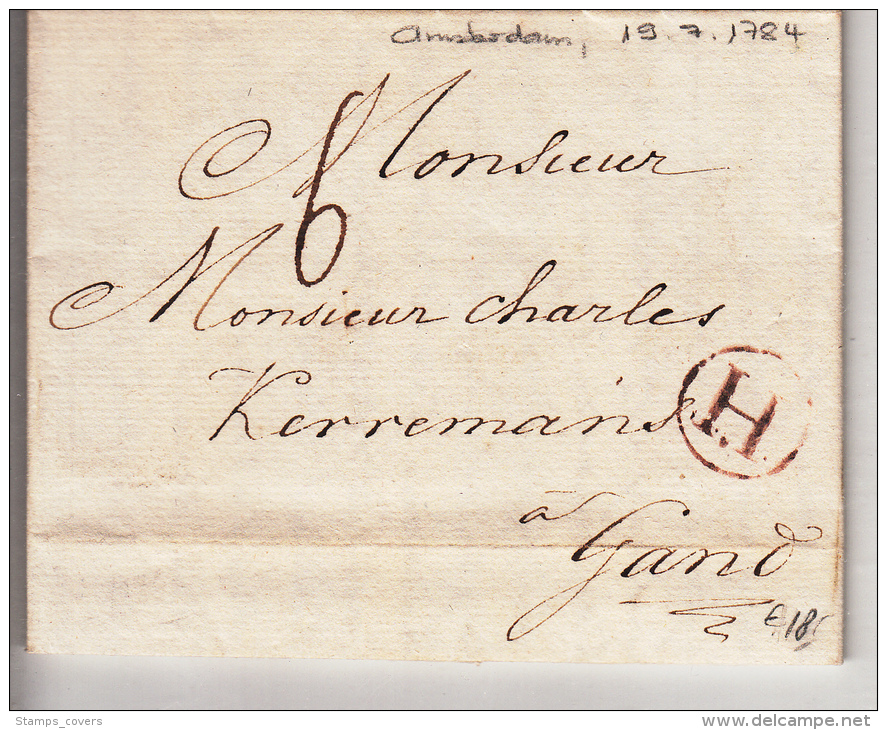 Amsterdam, 19.7.1784
6
Monsieur
Monsieur Charles
Kerremans
H
à
Gand
€18
Stamps_covers
www.delcampe.net